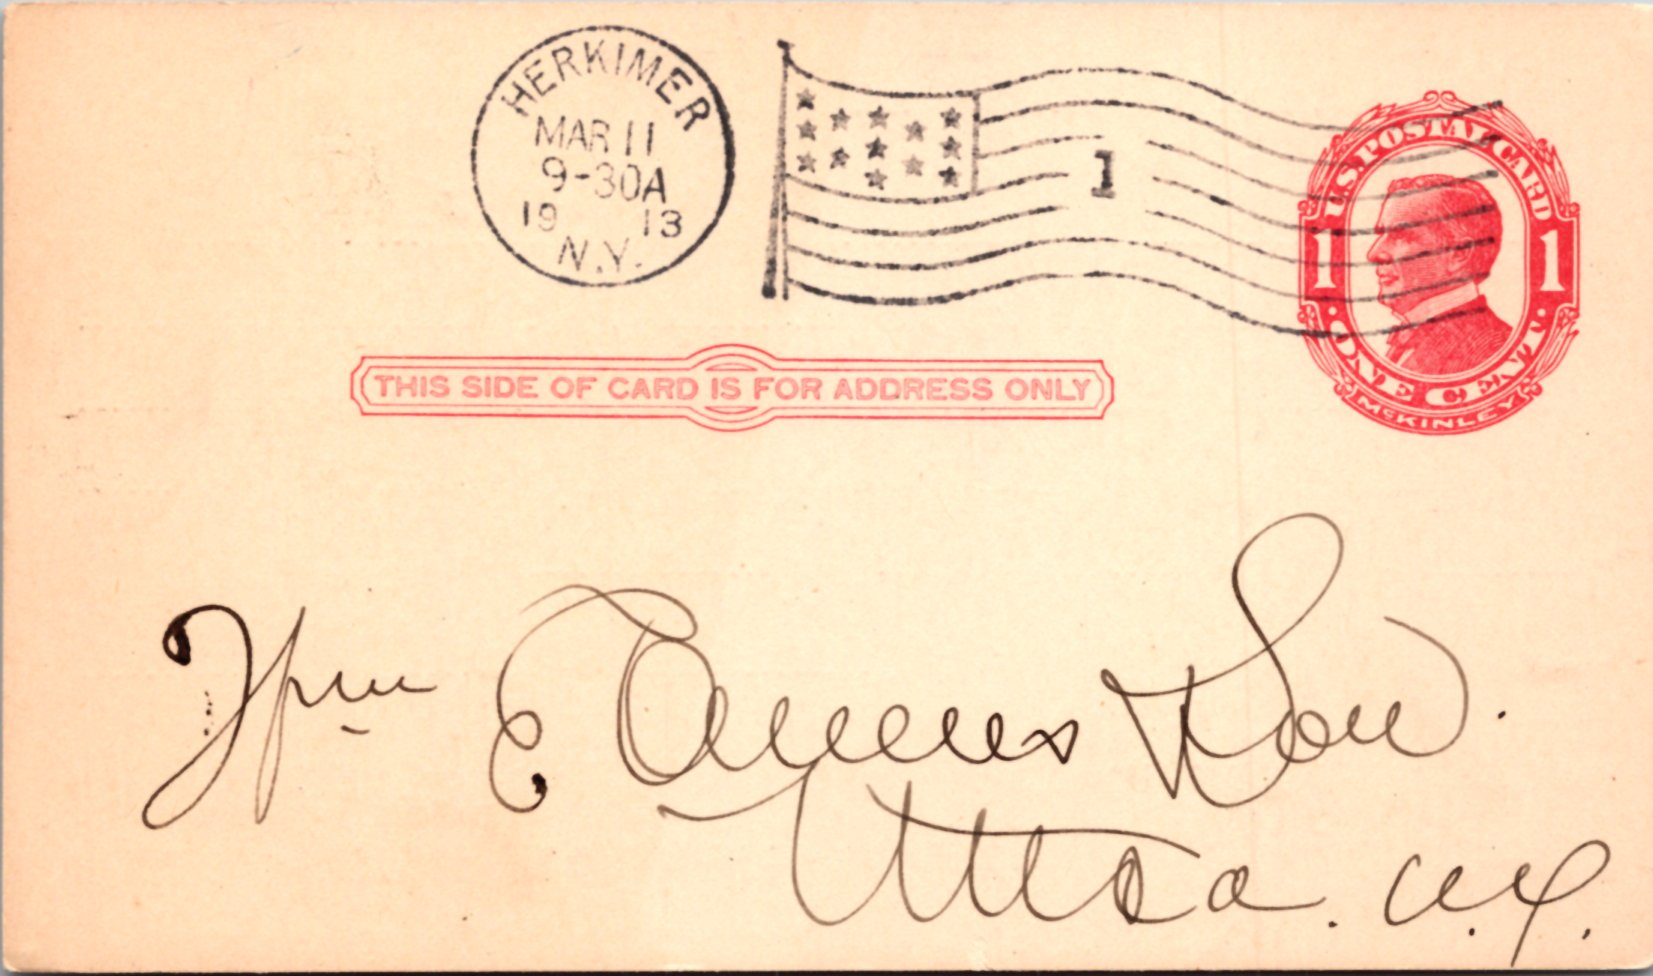 HERKIMER
MAR 11
9-30A
19 13
N.Y.
1
U.S. POSTAL CARD
1 1
· ONE CENT ·
McKINLEY
THIS SIDE OF CARD IS FOR ADDRESS ONLY
Wm E
Utica. N.Y.